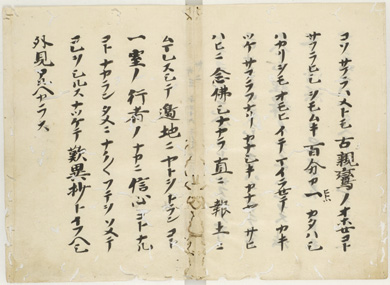 コソサフラハメトモ古親鸞ノオホセコト
サフラヒシオモムキ百分カ一カタハシ
ハカリヲモオモヒイテマイラセテカキ
ツケサフラフナリカナシキカナヤサヒ
ハヒニ念佛シナカラ直ニ報土ニ
ムマレスシテ邊地ニヤトヲトランコト
一室ノ行者ノナカニ信心コトナル
コトナカランタメニナク〳〵フテヲソメテ
コレヲシルスナツケテ歎異抄トイフヘシ
外見アルヘカラス